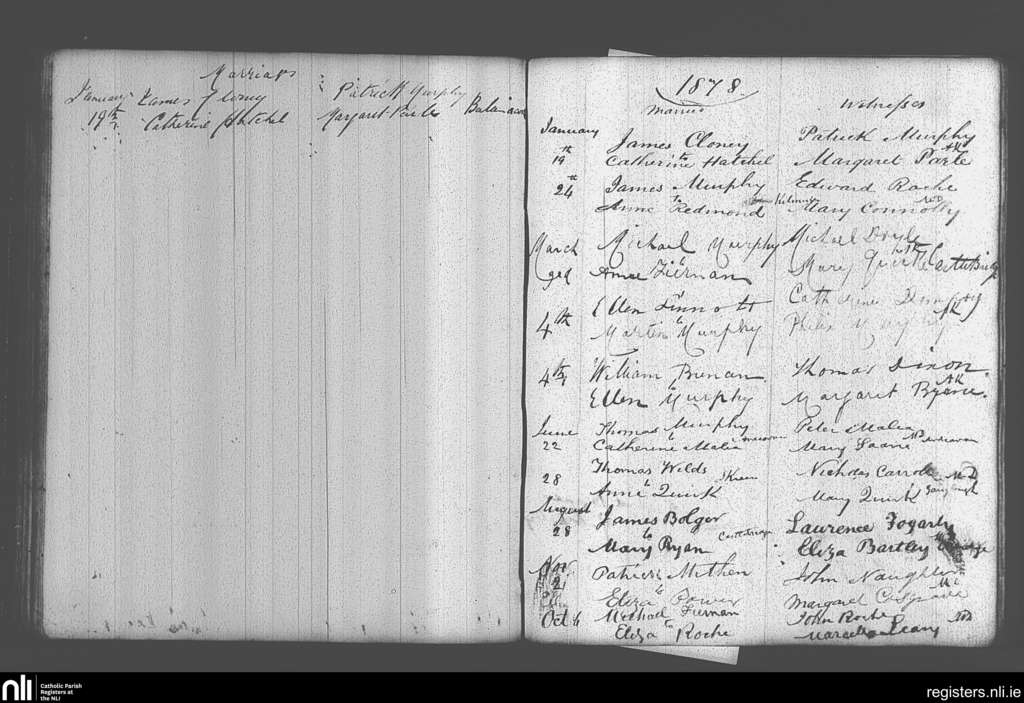 Marriages
January James Cloney Patrick Murphy
19th Catherine Hatchel Margaret Parle
1878.
Married Witnesses
January James Cloney Patrick Murphy
19th to Catherine Hatchel Margaret Parle AK
24th James Murphy Edward Roche
to Anne Redmond Mary Connolly
March Michael Murphy Michael Doyle
to Anne Tiernan Mary Quirke Castlebridge
4th Ellen Sinnott Catherine
to Martin Murphy Murphy AK
4th William Brenan Thomas Dixon.
to Ellen Murphy Margaret Byrne. AK
June Thomas Murphy Peter Malia
22 to Catherine Malia Mary
28 Thomas Wilds Nicholas Carroll
to Anne Quirk Mary Quirk
August James Bolger Laurence Fogarty
28 to Mary Ryan Castlebridge Eliza Bartley
Nov Patrick Methen John Naughter
21 to Eliza Power Margaret
Oct 6 Michael Tiernan John Roche
to Eliza Roche Marcella Leary
nli Catholic Parish
Registers at
the NLI
registers.nli.ie